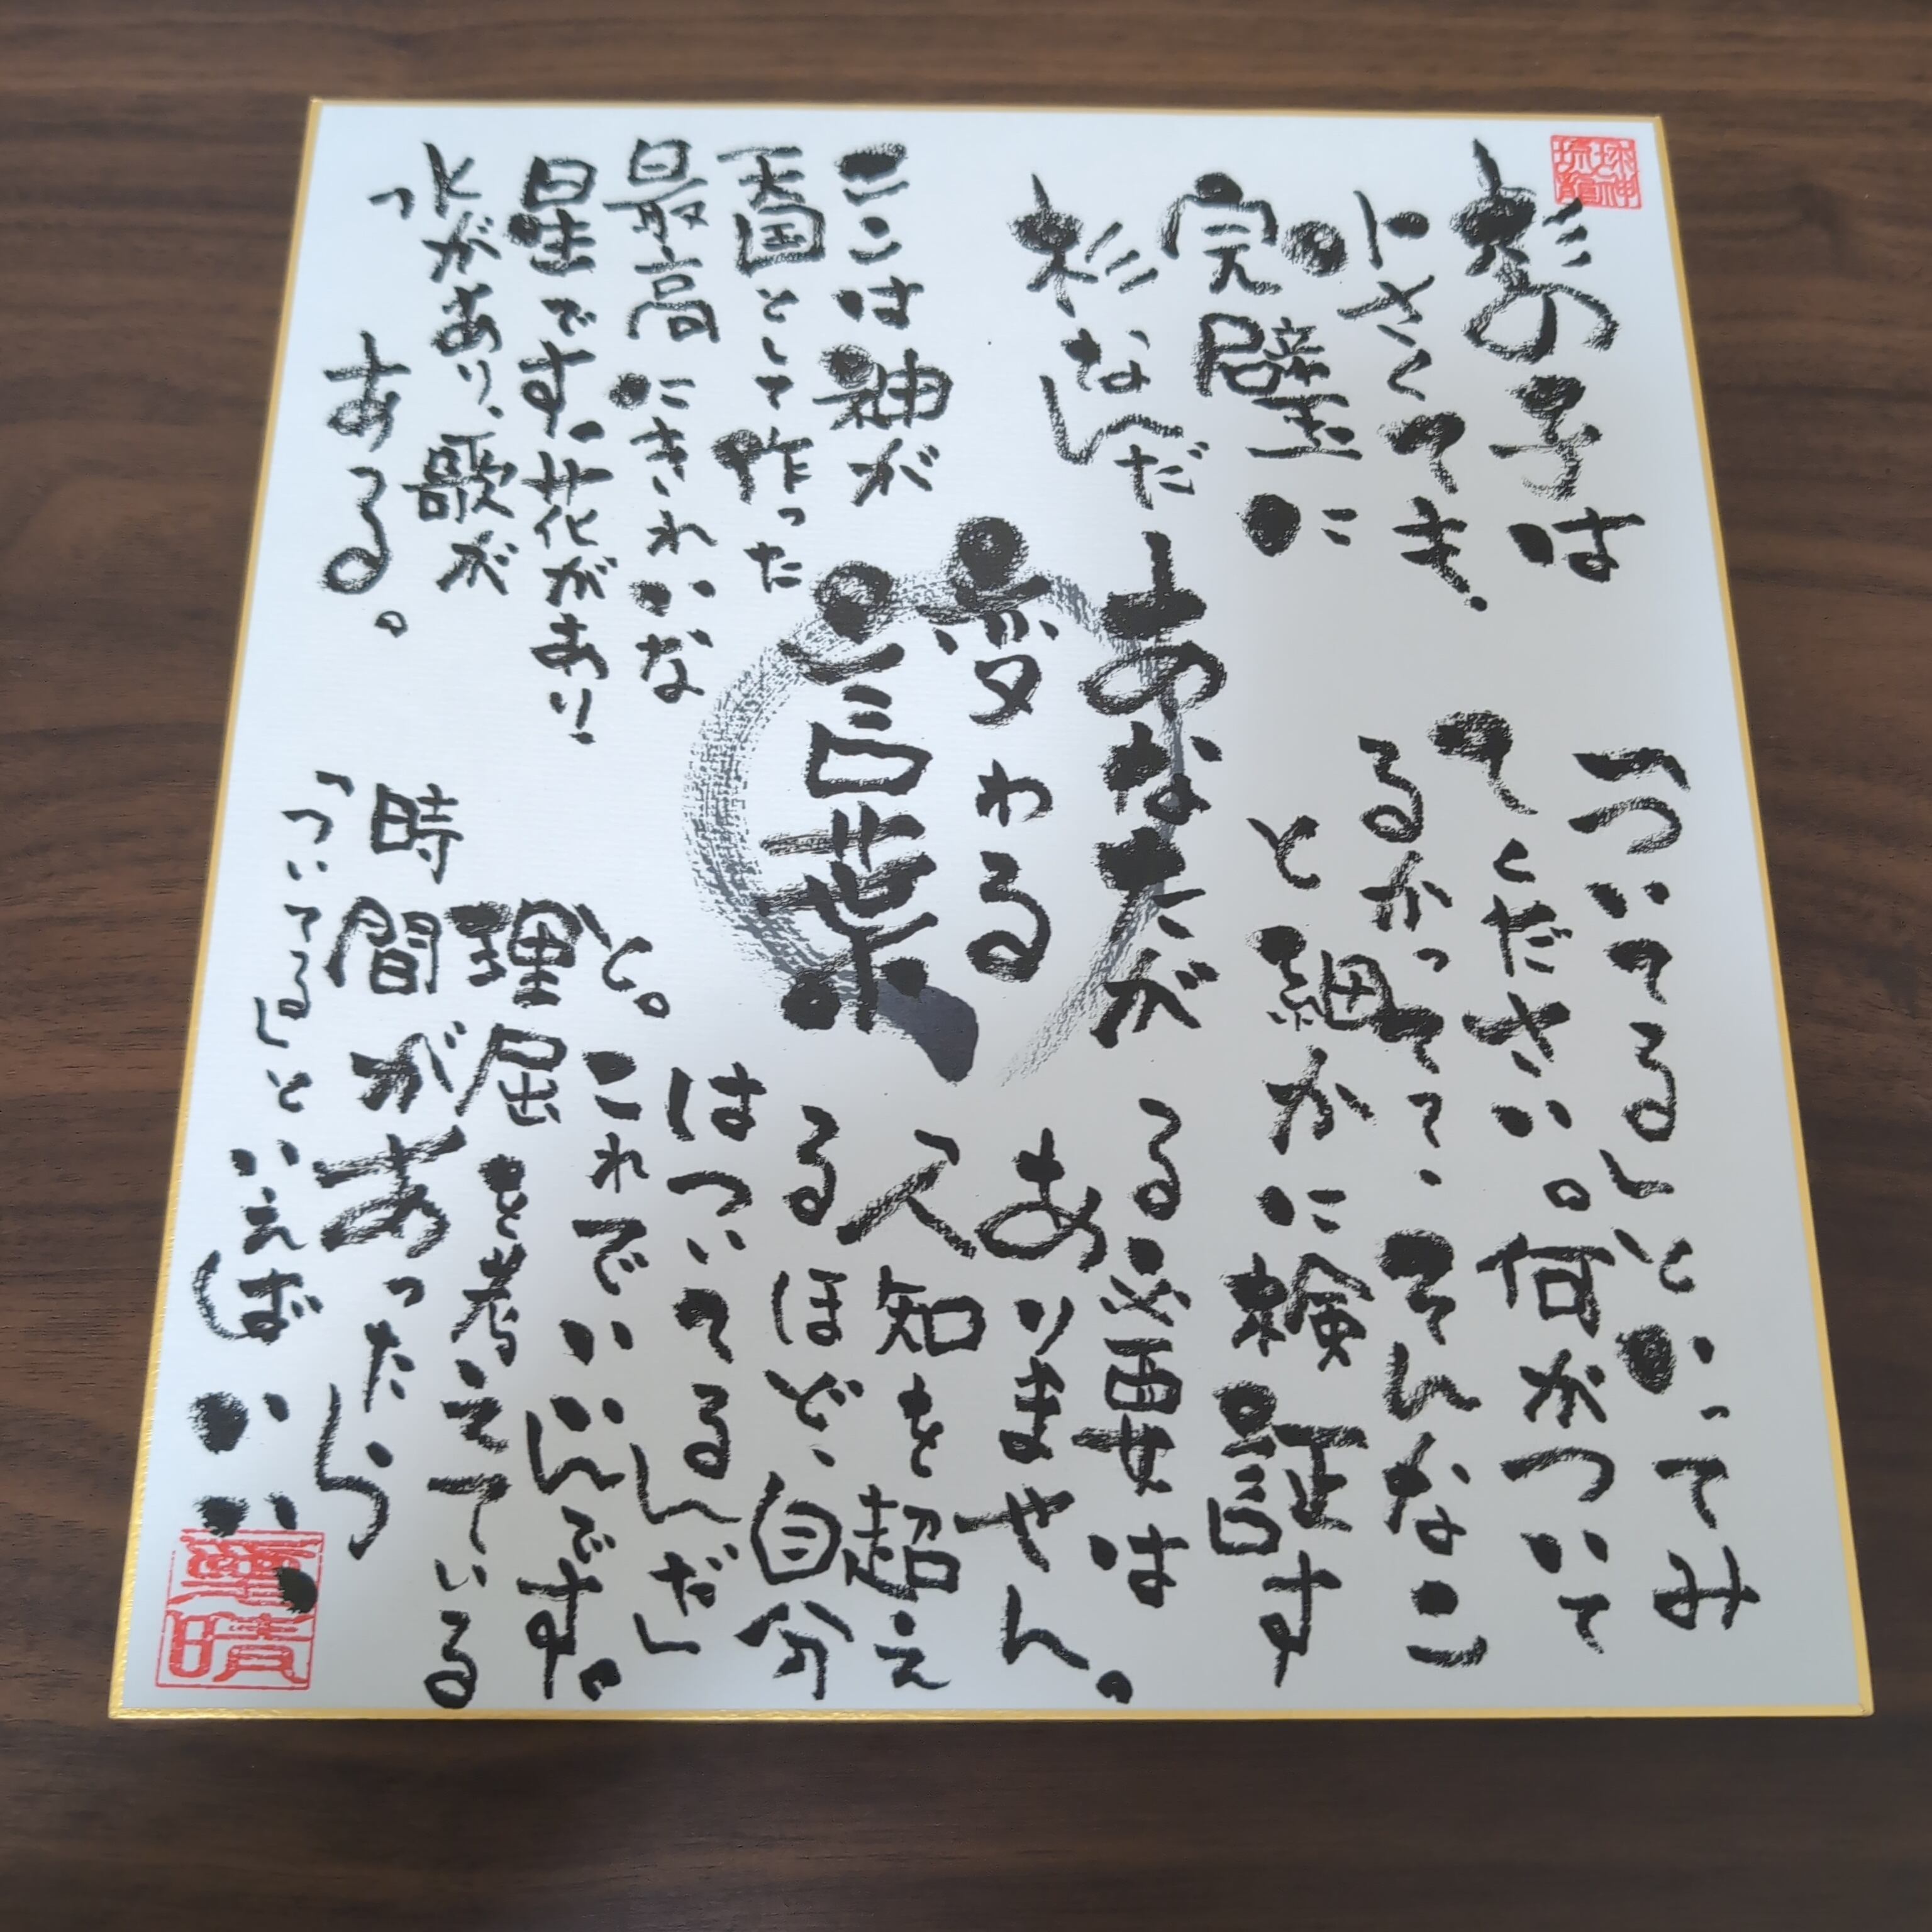 杉の子は
小さくても、
完璧に
杉なんだ
あなたが
変わる
言葉
ここは神が
天国として作った
最高にきれいな
星です、花があり、
水があり、歌が
ある。
「ついてる」といってみ
てください。何がついて
るかってて、そんなこ
と細かに検証す
る必要は
ありません。
人知を超え
るほど、自分
はついてるんだ」
と。これでいいんです。
理屈を考えている
時間があったら
「ついてる」といえばいい